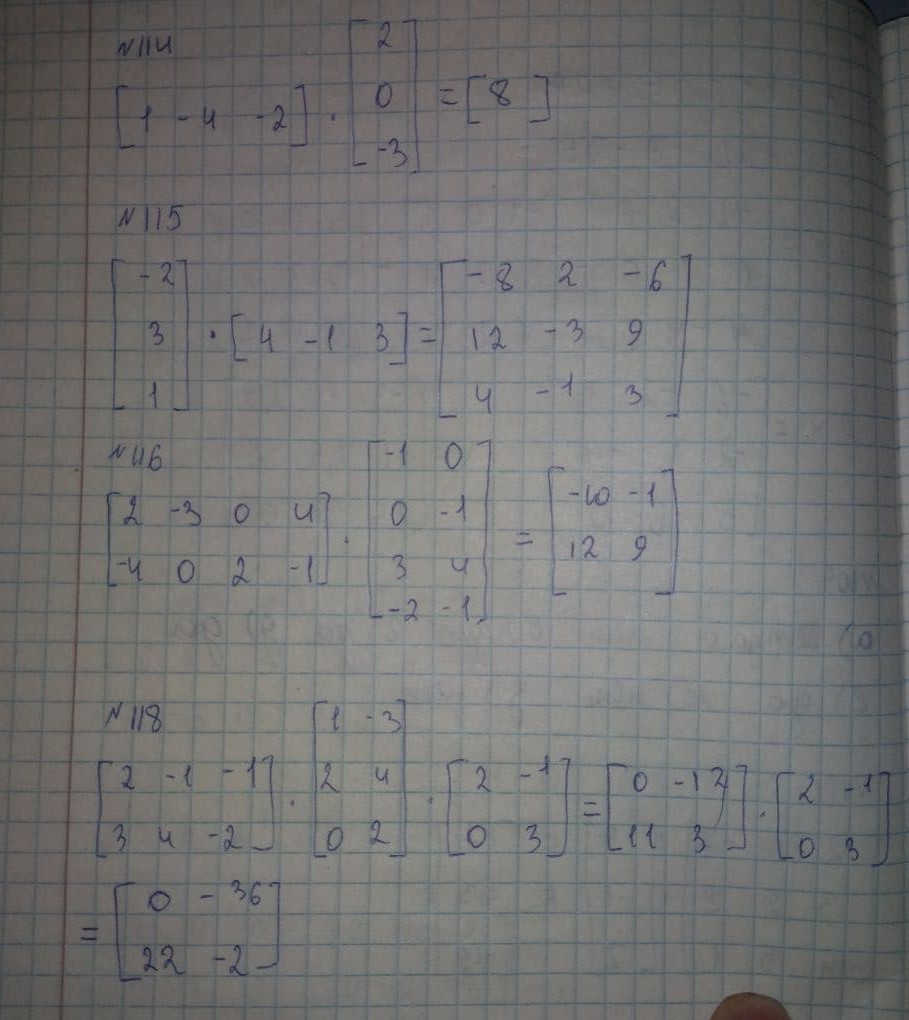 №114
[1 -4 -2] · [2 0 -3] = [8]
№115
[-2 3 1] · [4 -1 3] = [-8 2 -6
12 -3 9
4 -1 3]
№116
[2 -3 0 4
-4 0 2 -1] · [-1 0
0 -1
3 4
-2 -1] = [-10 -1
12 9]
№118
[2 -1 -1
3 4 -2] · [1 -3
2 4
0 2] · [2 -1
0 3] = [0 -12
11 3] · [2 -1
0 3]
= [0 -36
22 -2]